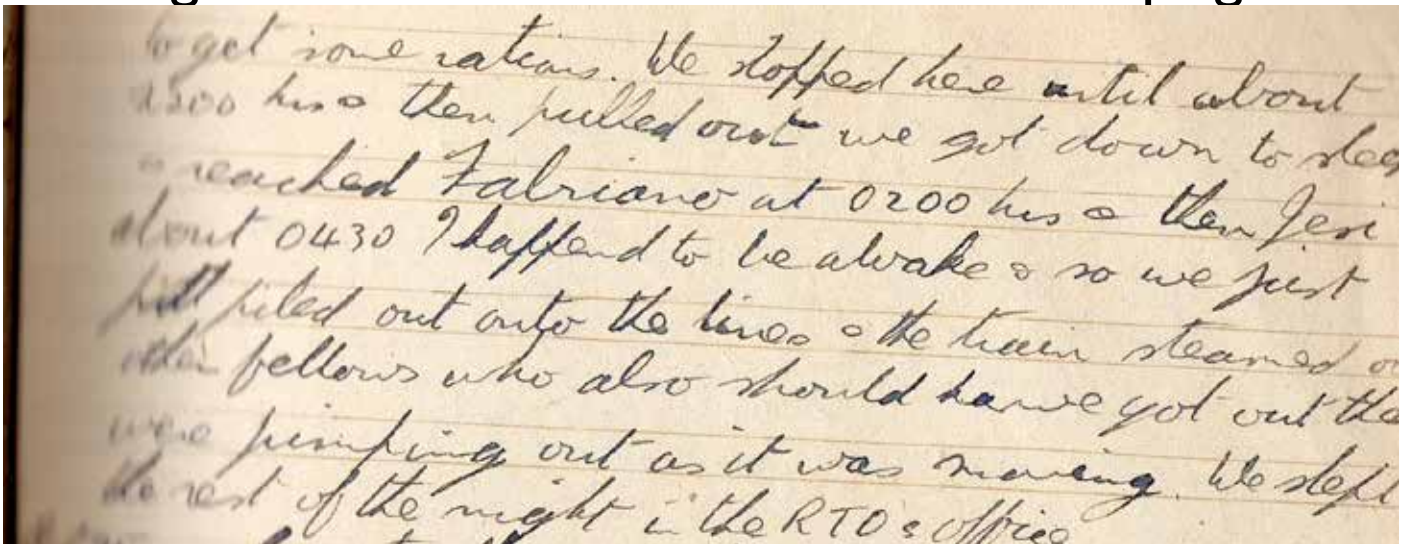 to get some rations. We stopped here until about
2200 hrs & then pulled out we got down to sleep
& reached Fabriano at 0200 hrs & then Jesi
about 0430 I happend to be awake & so we just
piled out onto the lines & the train steamed
other fellows who also should have got out the
were jumping out as it was moving. We slept
the rest of the night in the RTO's office